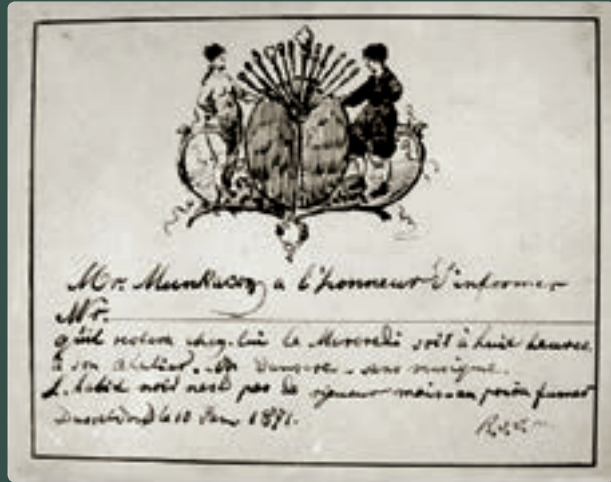 Mr. Munkacsy a l'honneur d'informer
Mr.
qu'il restera chez-lui le Mercredi soir à huit heures
à son atelier. On dansera sans musique.
L'habit noir n'est pas de rigueur mais on poura fumer
Dusseldorf le 10 Janv 1871.